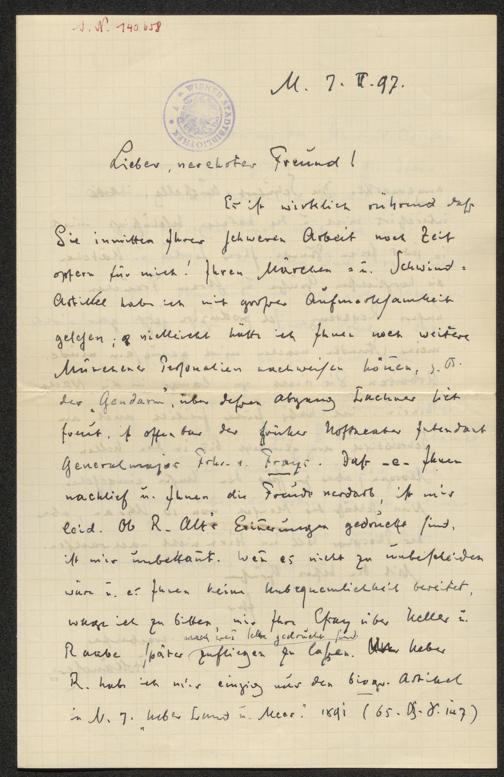 J. N. 140.658
WIENER STADTBIBLIOTHEK
M. 7. II. 97.
Lieber, verehrter Freund!
Es ist wirklich rührend daß
Sie inmitten Ihrer schweren Arbeit noch Zeit
opfern für mich! Ihren Märchen- u. Schwind-
Artikel hab ich mit großer Aufmerksamkeit
gelesen; vielleicht hätte ich Ihnen noch weitere
Münchener Personalien nachweisen können, z. B.
der „Gendarm", über dessen Abgang Lachner sich
freut, ist offenbar der frühere Hoftheater Intendant
Generalmajor Frhr. v. Frays. Daß Ihnen
nachlief u. Ihnen die Freude verdarb, ist mir
leid. Ob R. Alt's Erinerungen gedruckt sind,
ist mir unbekant. Wen es nicht zu unbescheiden
wär u. es Ihnen keine Unbequemlichkeit bereitet,
wage ich zu bitten, mir Ihr Essay über Keller u.
Raabe später zufliegen zu laßen. Ueber
R. hab ich mir einzig nur den biogr. Artikel
in N. 7. „Ueber Land u. Meer." 1891 (65. Bd.